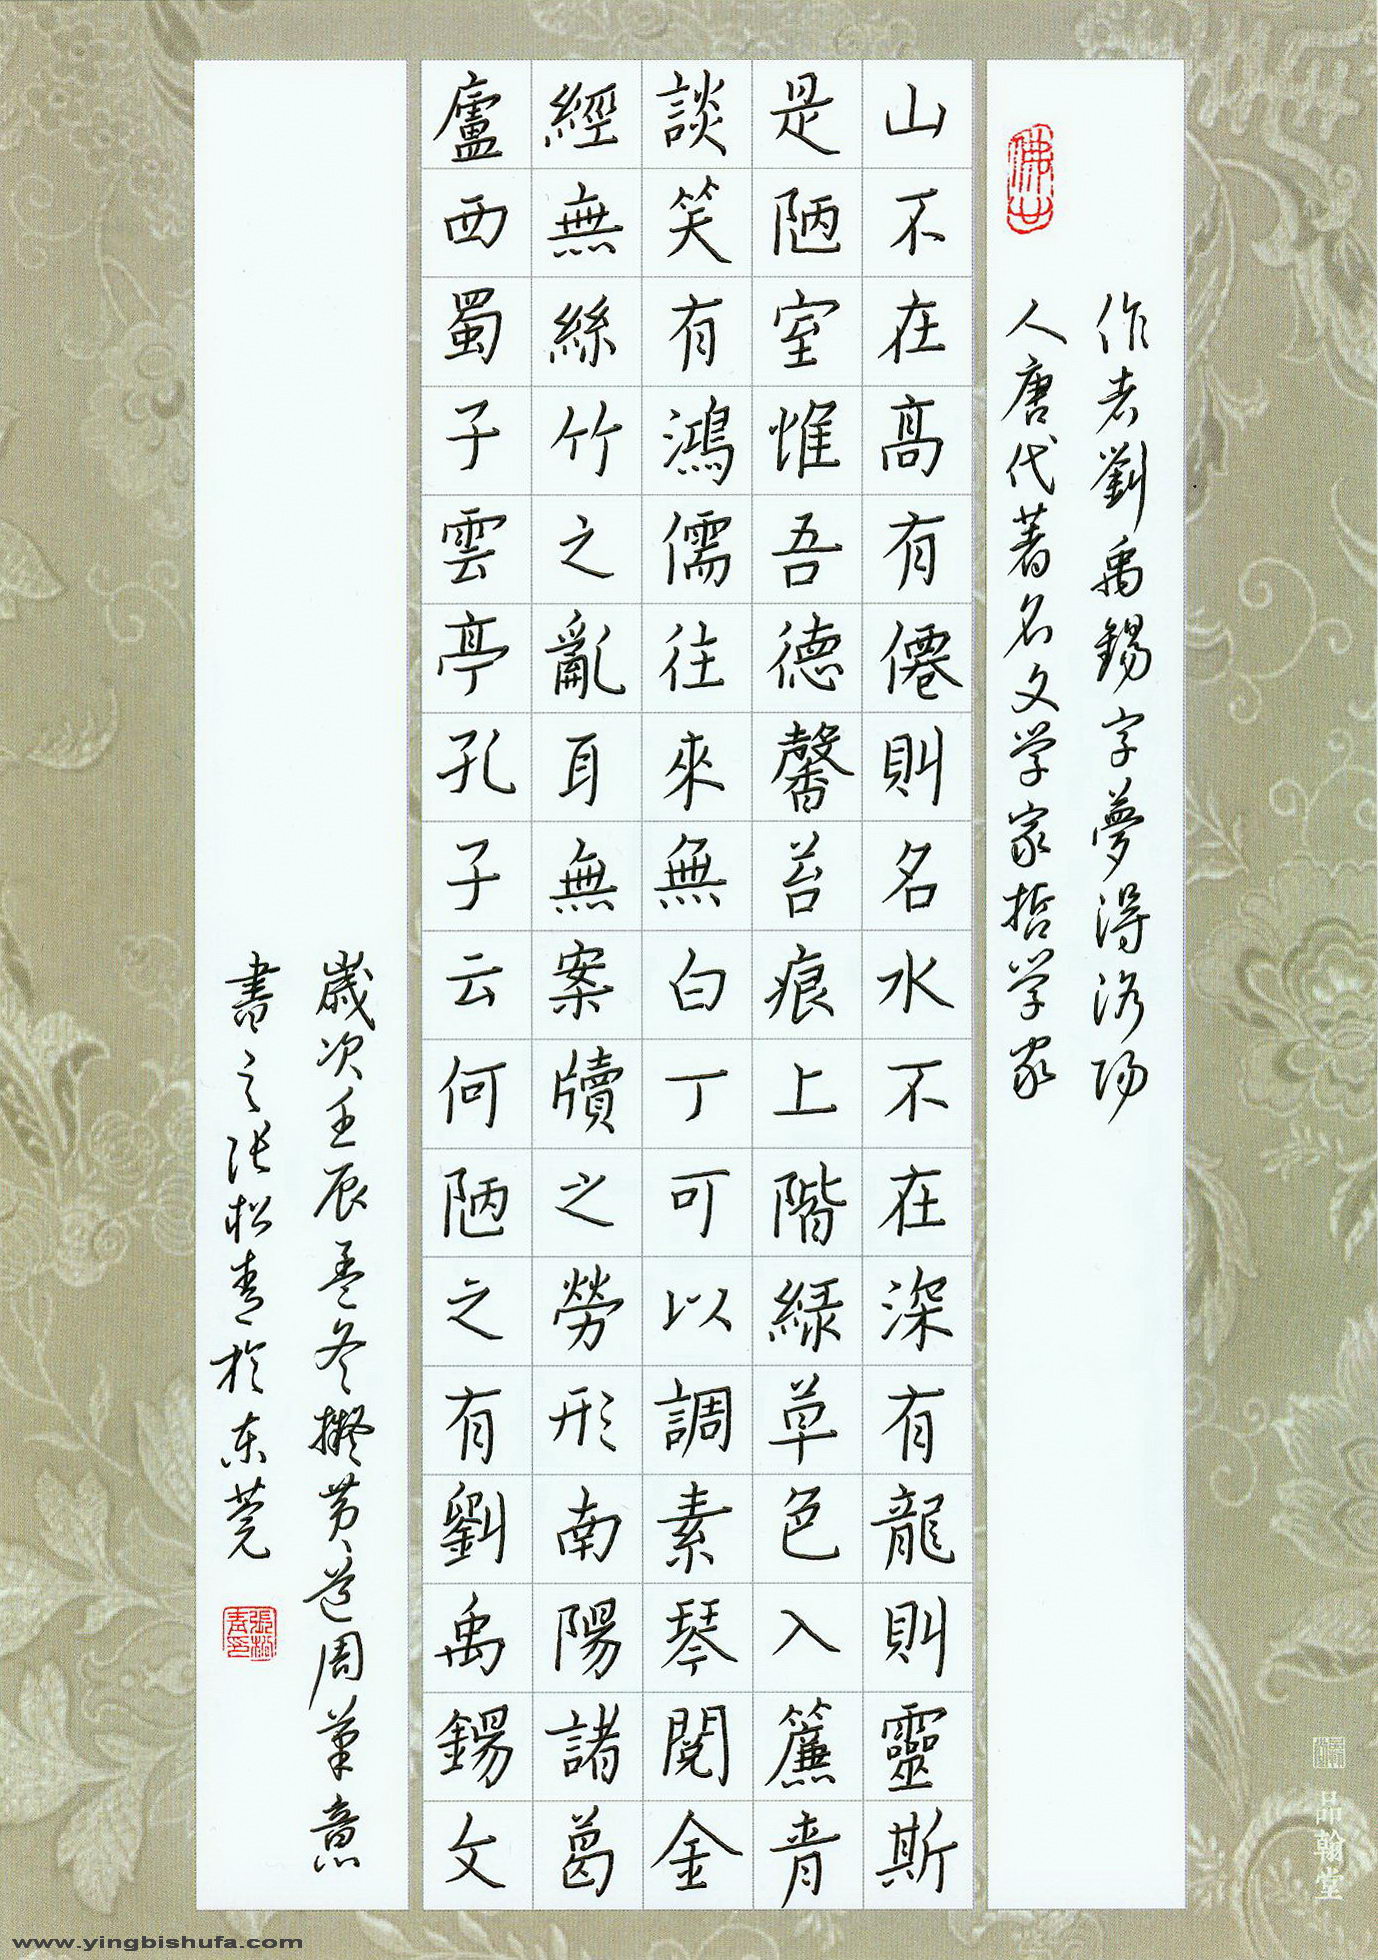 作者劉禹錫字夢得洛阳
人唐代著名文学家哲学家
山不在高有僊則名水不在深有龍則靈斯
是陋室惟吾德馨苔痕上階緑草色入簾青
談笑有鴻儒往來無白丁可以調素琴閱金
經無絲竹之亂耳無案牘之勞形南陽諸葛
廬西蜀子雲亭孔子云何陋之有劉禹錫文
歲次壬辰孟冬擬黄道周筆意
書之張松青於东莞
張松青印
品翰堂
www.yingbishufa.com